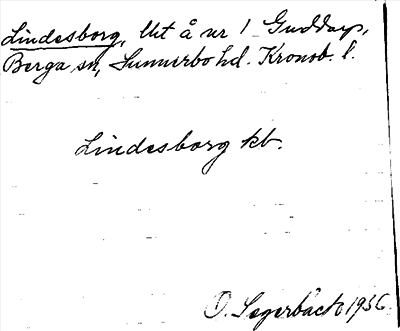 Lindesborg, Ut å nr 1 Guddarp,
Berga sn, Sunnerbo hd. Kronob. l.
Lindesborg kb.
O. Segerbäck 1936.